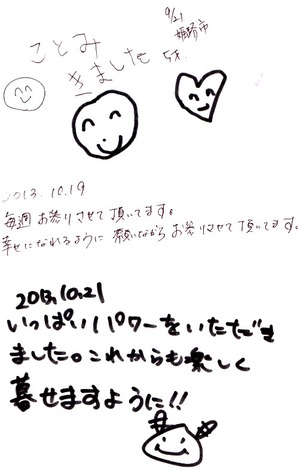 9/21
姫路市
5才
ことみ
きました
2013.10.19
毎週お参りさせて頂いてます。
幸せになれるように 願いながらお参りさせて頂いてます。
2013.10.21
いっぱいパワーをいただき
ました。これからも楽しく
暮せますように!!